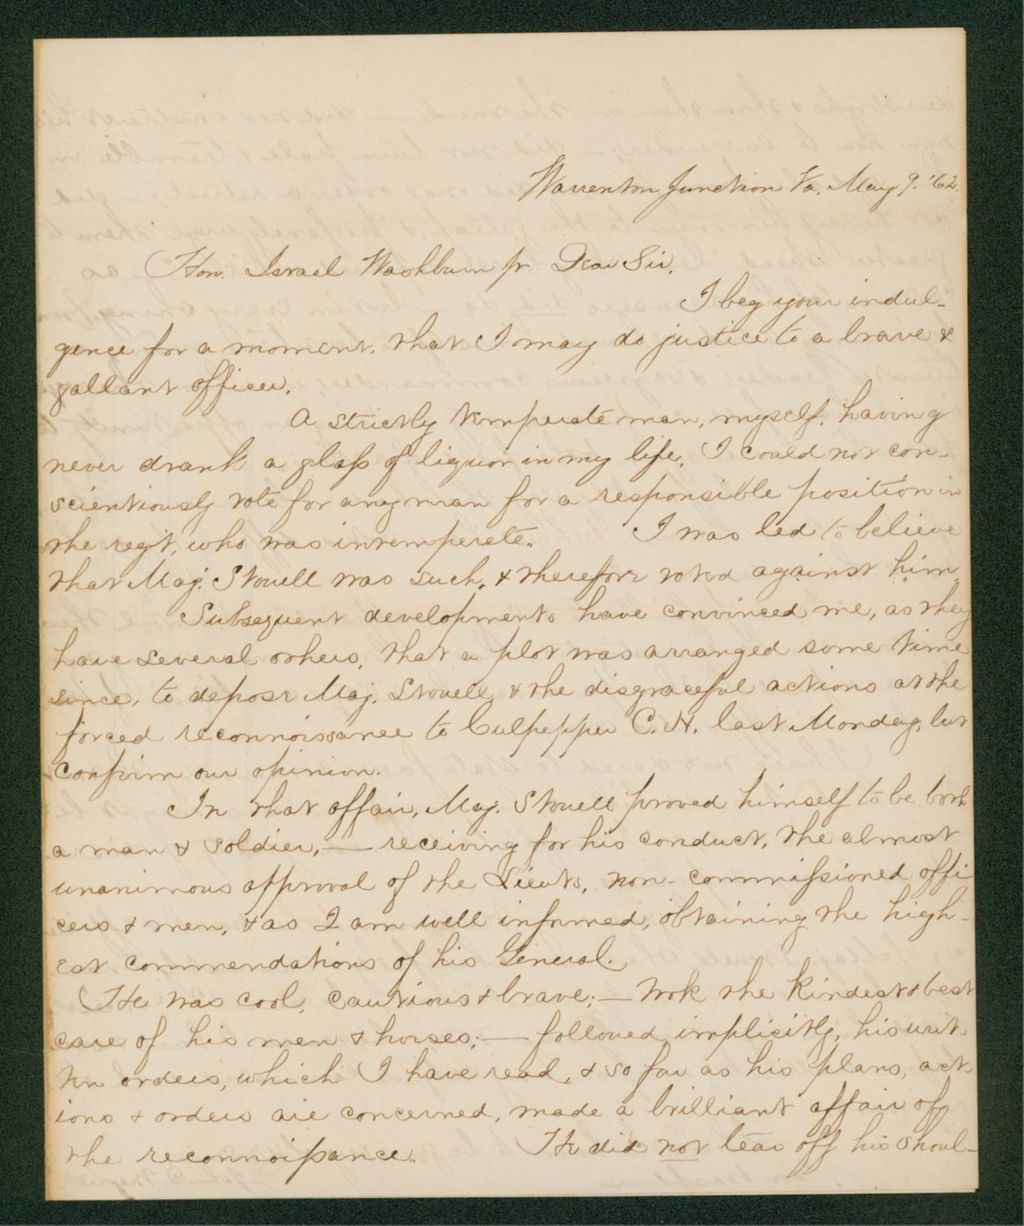 Warrenton Junction Va. May 9. '62.
Hon. Israel Washburn jr. Dear Sir,
I beg your indul-
gence for a moment, that I may do justice to a brave &
gallant officer.
A strictly temperate man, myself, having
never drank a glass of liquor in my life, I could not con-
scientiously vote for any man for a responsible position in
the regt, who was intemperate. I was led to believe
that Maj. Stowell was such, & therefore voted against him.
Subsequent developments have convinced me, as they
have several others, that a plot was arranged some time
since, to depose Maj. Stowell, & the disgraceful actions at the
forced reconnoissance to Culpepper C. H. last Monday, but
confirm our opinion.
In that affair, Maj. Stowell proved himself to be both
a man & soldier, — receiving for his conduct, the almost
unanimous approval of the Lieuts, non-commissioned offi
cers & men, & as I am well informed, obtaining the high-
est commendations of his General.
He was cool, cautious & brave; — took the kindest & best
care of his men & horses; — followed implicitly, his writ-
ten orders, which I have read, & so far as his plans, act-
ions & orders are concerned, made a brilliant affair of
the reconnoissance. He did not tear off his shoul-